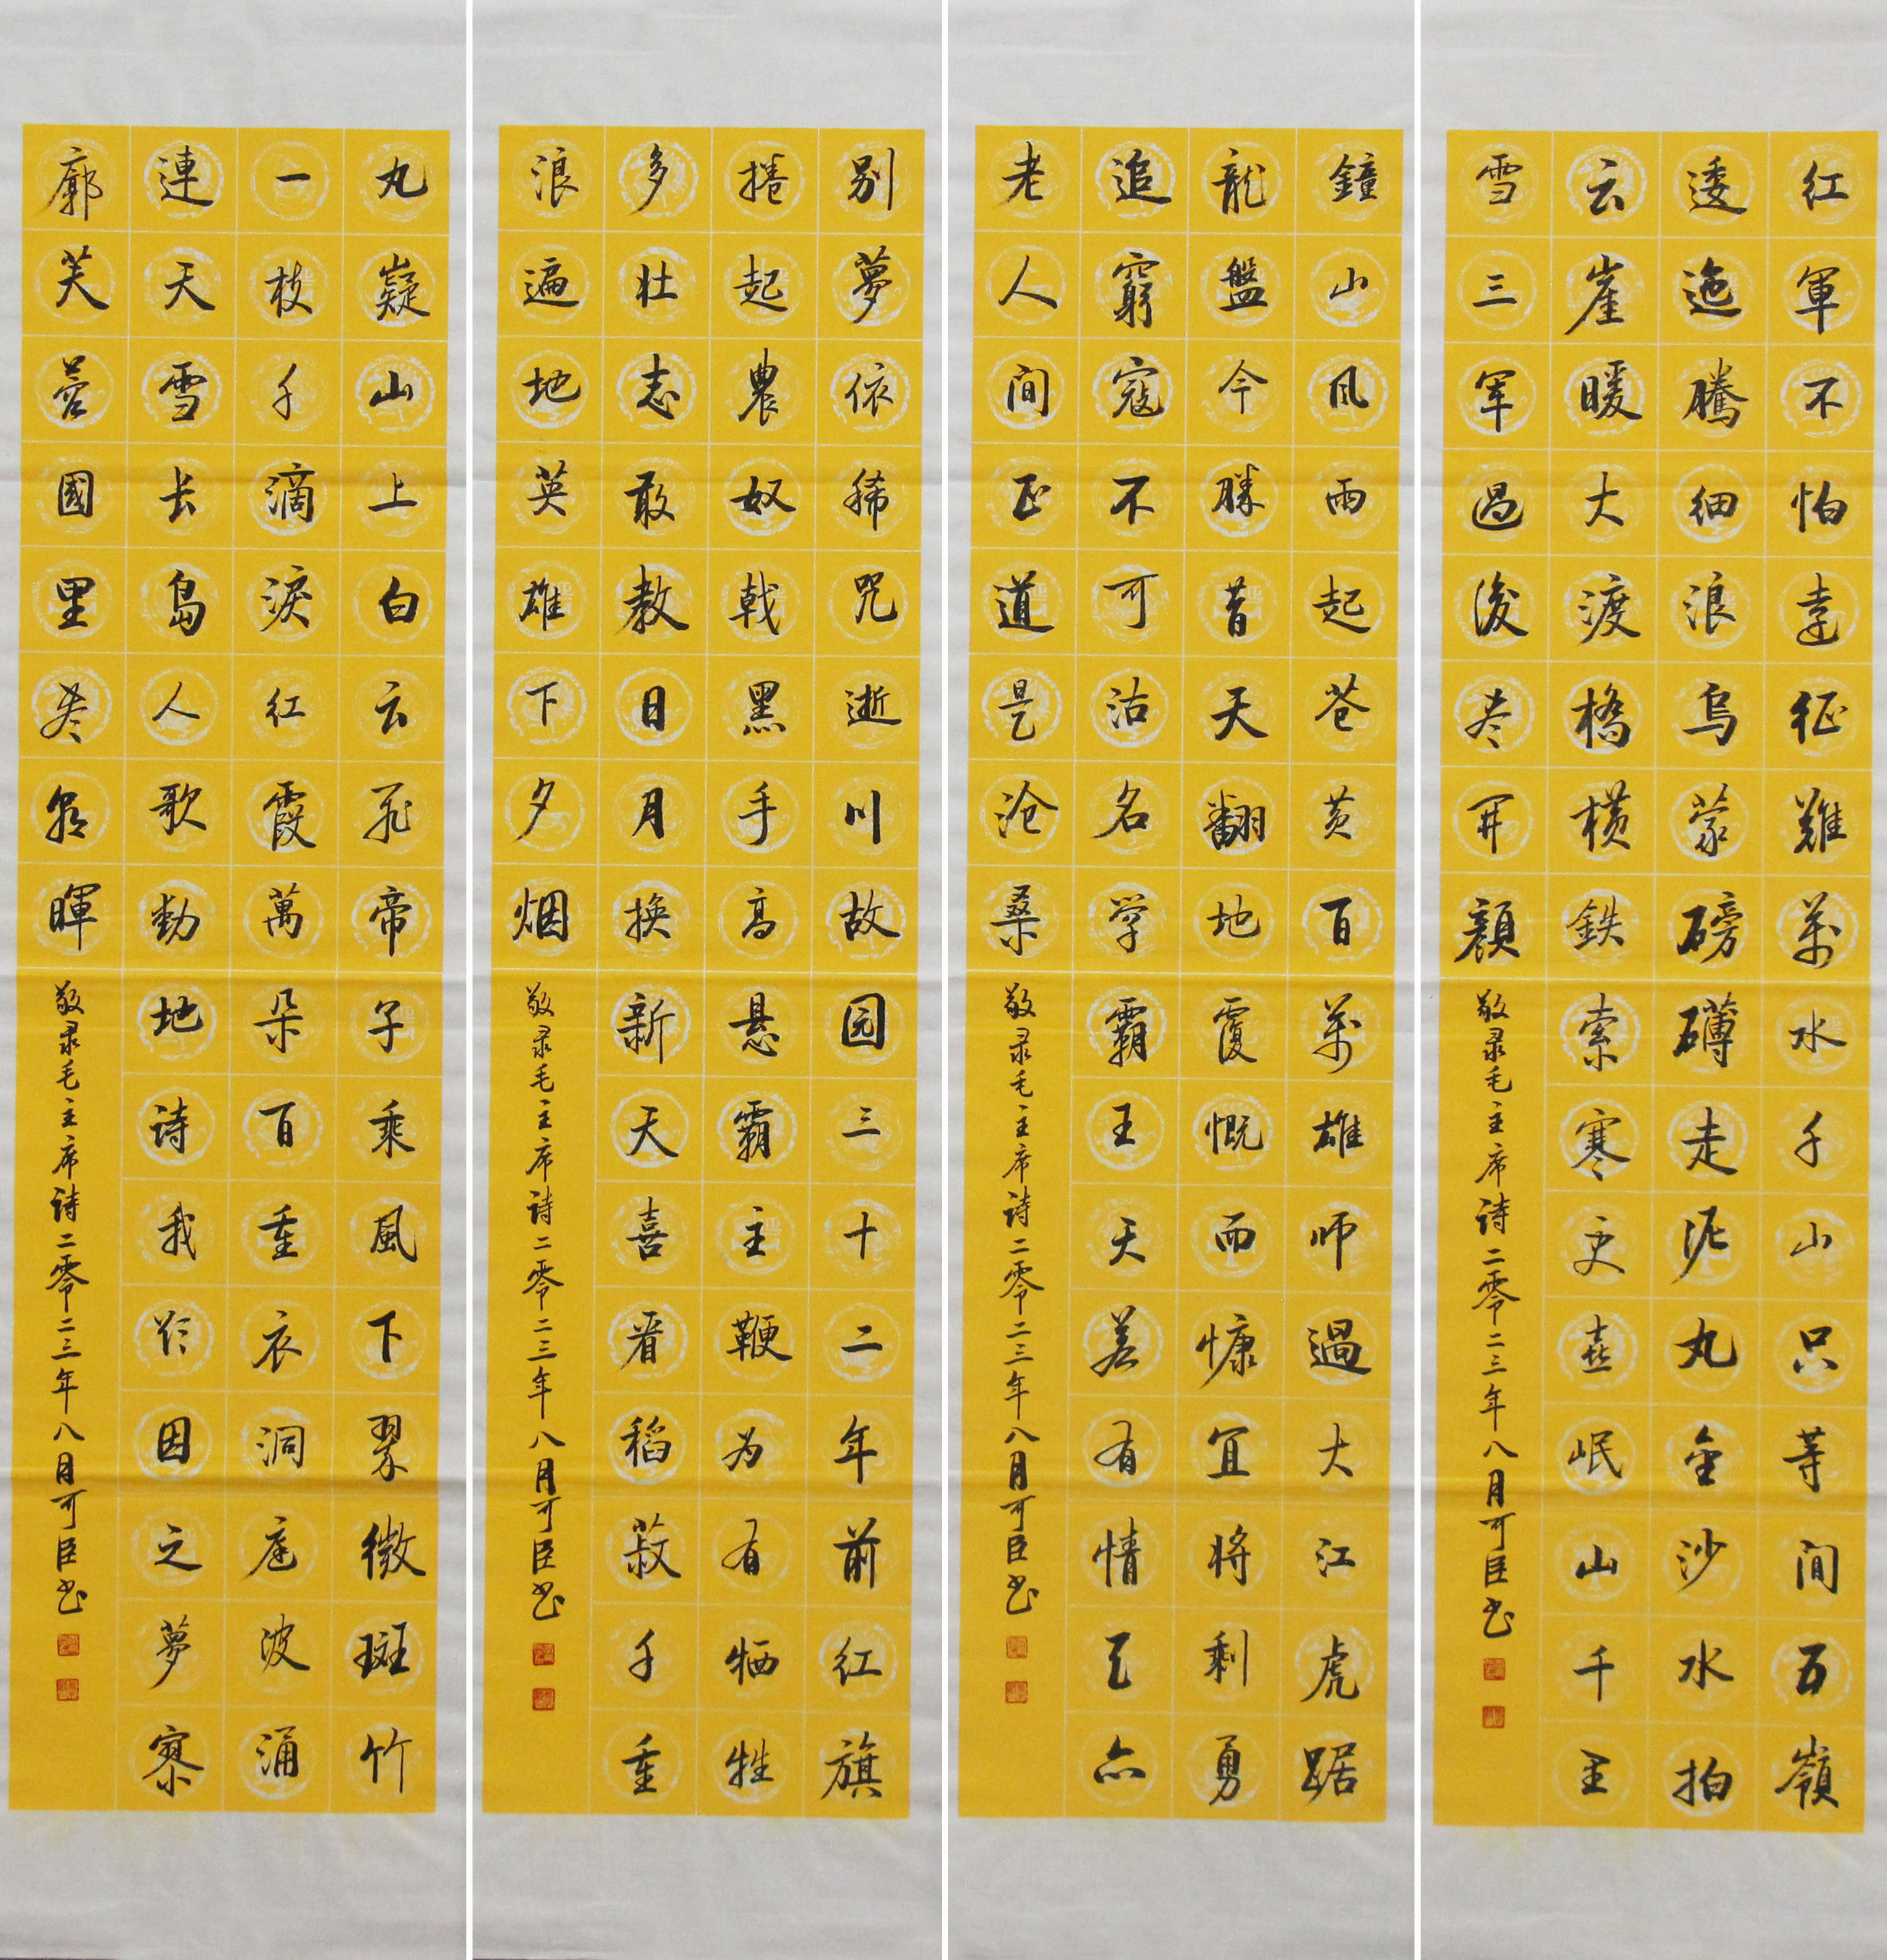 红軍不怕遠征難萬水千山只等间五嶺
逶迤騰細浪烏蒙磅礴走泥丸金沙水拍
云崖暖大渡橋横鉄索寒更喜岷山千里
雪三军過後尽開顔
敬录毛主席诗二零二三年八月可臣书
鐘山风雨起苍黄百萬雄师過大江虎踞
龍盤今勝昔天翻地覆慨而慷宜将剩勇
追窮寇不可沽名学霸王天若有情天亦
老人间正道是沧桑
敬录毛主席诗二零二三年八月可臣书
别夢依稀咒逝川故园三十二年前红旗
捲起農奴戟黑手高悬霸主鞭为有牺牲
多壮志敢教日月换新天喜看稻菽千重
浪遍地英雄下夕烟
敬录毛主席诗二零二三年八月可臣书
丸嶷山上白云飛帝子乘風下翠微斑竹
一枝千滴淚红霞萬朵百重衣洞庭波涌
連天雪长島人歌動地诗我欲因之夢寥
廓芙蓉國里尽朝暉
敬录毛主席诗二零二三年八月可臣书